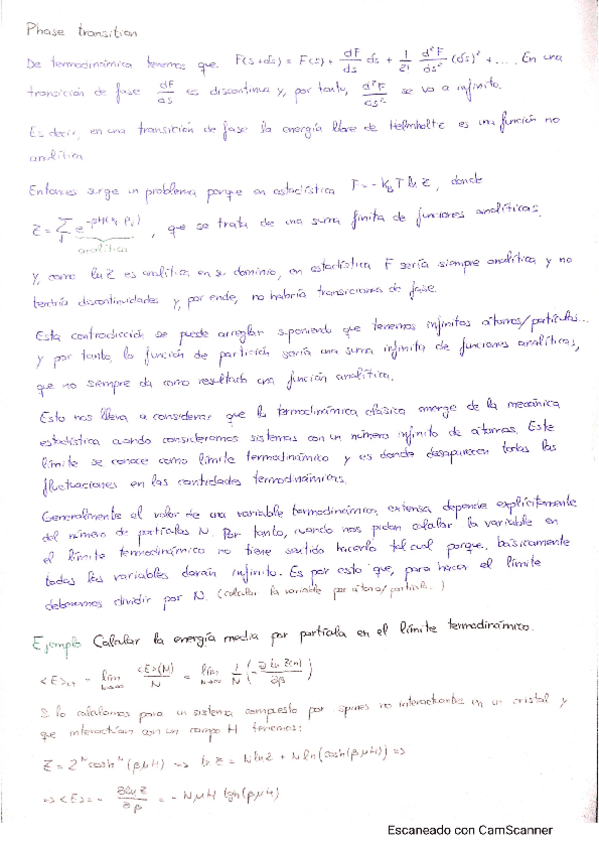 Phase transition
De termodinámica tenemos que F(s+ds) = F(s) + dF/ds ds + 1/2! d²F/ds² (ds)² + .... En una
transición de fase dF/ds es discontinua y, por tanto, d²F/ds² se va a infinito.
Es decir, en una transición de fase la energía libre de Helmholtz es una función no
analítica
Entonces surge un problema porque en estadística F = -K_B T ln Z, donde
Z = Σ e^{-βH(q, p)}, que se trata de una suma finita de funciones analíticas,
analítica
y, como ln Z es analítica en su dominio, en estadística F sería siempre analítica y no
tendría discontinuidades y, por ende, no habría transiciones de fase.
Esta contradicción se puede arreglar suponiendo que tenemos infinitos átomos/partículas...
y por tanto, la función de partición sería una suma infinita de funciones analíticas,
que no siempre da como resultado una función analítica.
Esto nos lleva a considerar que la termodinámica clásica emerge de la mecánica
estadística cuando consideramos sistemas con un número infinito de átomos. Este
límite se conoce como límite termodinámico y es donde desaparecen todas las
fluctuaciones en las cantidades termodinámicas.
Generalmente el valor de una variable termodinámica extensa depende explícitamente
del número de partículas N. Por tanto, cuando nos pidan calcular la variable en
el límite termodinámico no tiene sentido hacerlo tal cual porque, básicamente
todas las variables darán infinito. Es por esto que, para hacer el límite
deberemos dividir por N. (calcular la variable por átomo/partícula..)
Ejemplo Calcular la energía media por partícula en el límite termodinámico.
= lim <E>(N)/N = lim 1/N (-∂ ln Z(N)/∂β)
Si lo calculamos para un sistema compuesto por spines no interactuantes en un cristal y
que interactúan con un campo H tenemos:
Z = 2^N cosh^N (βμH) → ln Z = N ln 2 + N ln(cosh(βμH)) ⇒
⇒ <E> = - ∂ln Z/∂β = - NμH tgh(βμH)
Escaneado con CamScanner